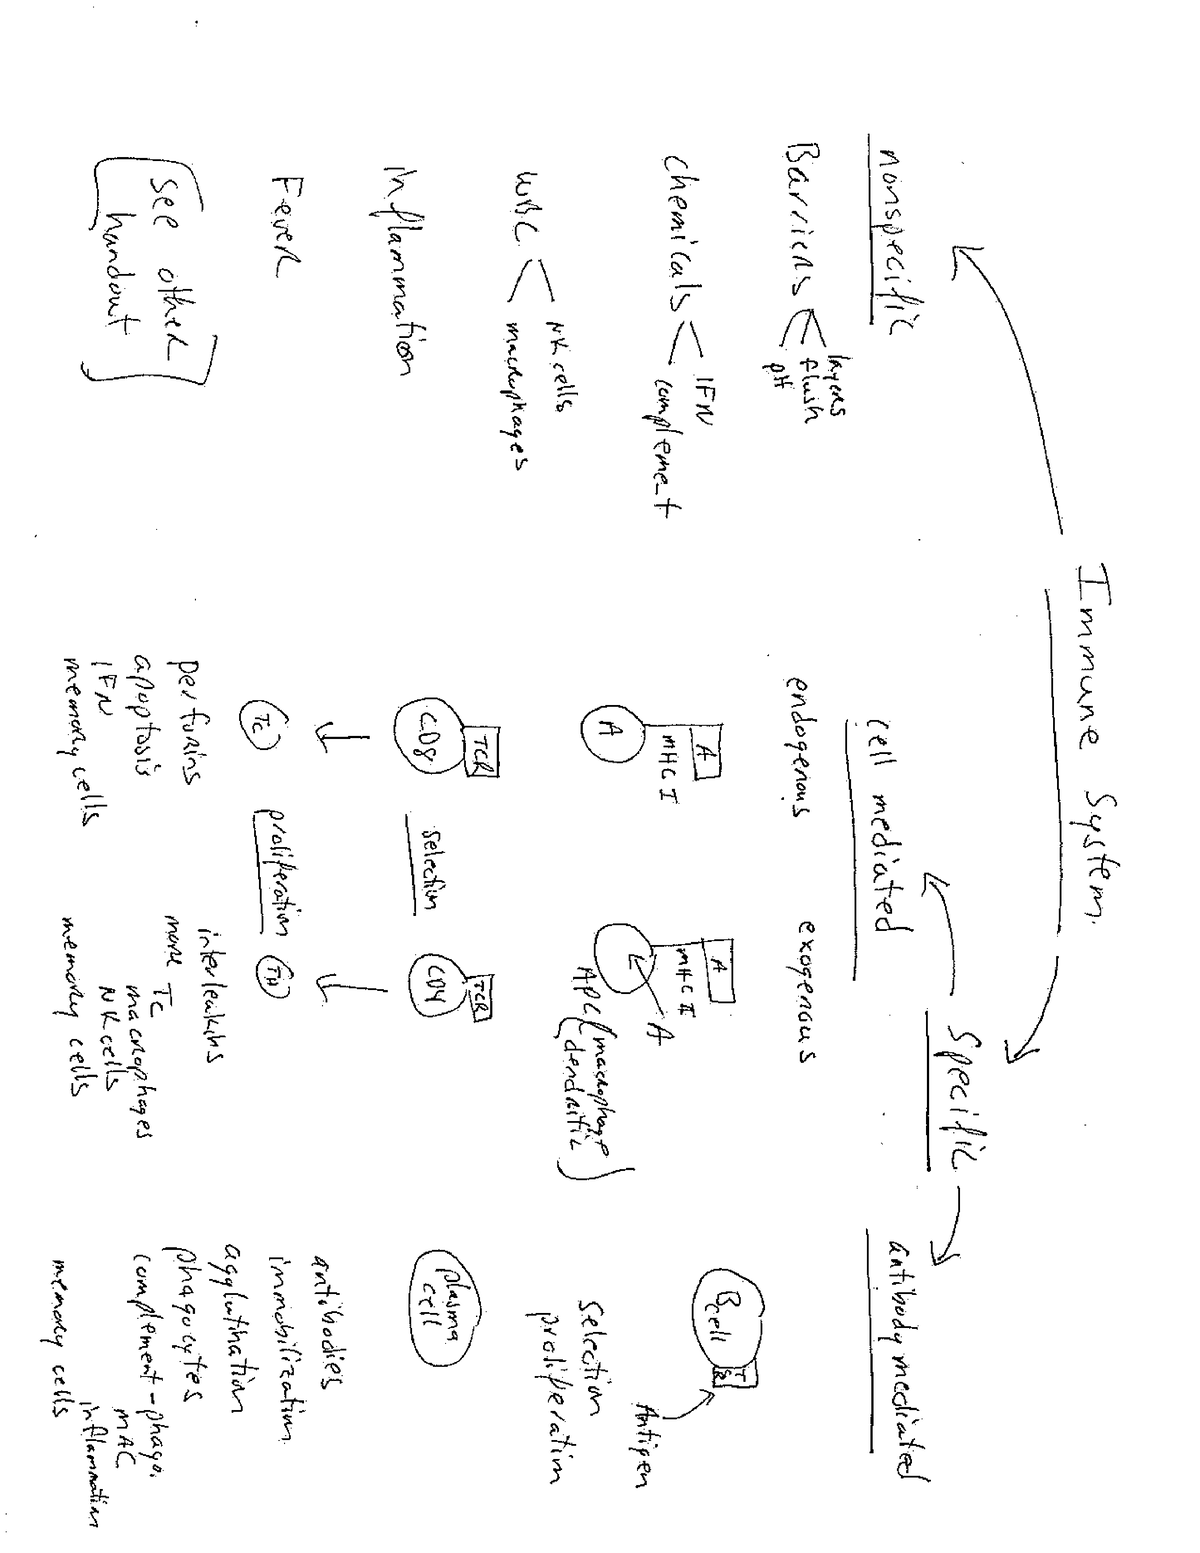 Immune System
nonspecific
Barriers
layers
flush
pH
chemicals
IFN
complement
WBC
NK cells
macrophages
inflammation
Fever
See other
handout
Specific
cell mediated
endogenous
A
A
MHC I
TCR
CD8
Tc
perforins
apoptosis
IFN
memory cells
selection
proliferation
exogenous
A
MHC II
A
APC (macrophage
dendritic)
TCR
CD4
TH
interleukins
more Tc
macrophages
NK cells
memory cells
antibody mediated
B
cell
Antigen
Selection
proliferation
plasma
cell
antibodies
immobilization
agglutination
phagocytes
complement - phago.
MAC
inflammation
memory cells